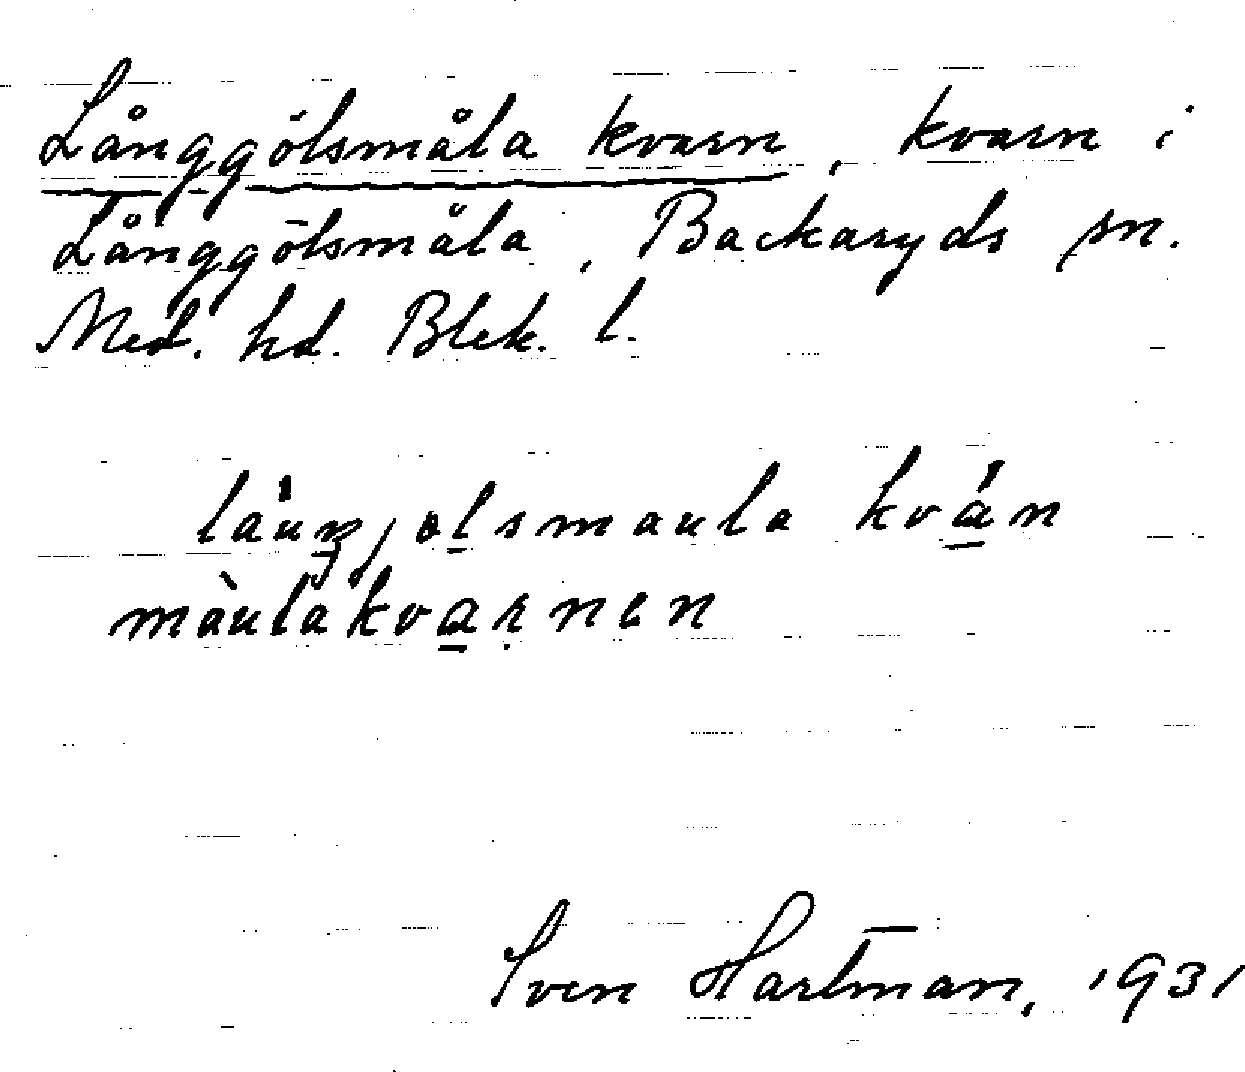 Långgölsmåla kvarn, kvarn i
Långgölsmåla, Backaryds sn.
Med. hd. Blek. l.
làuŋjo̱lsmaula kvá̱n
màulakva̱ṛnen
Sven Hartman, 1931